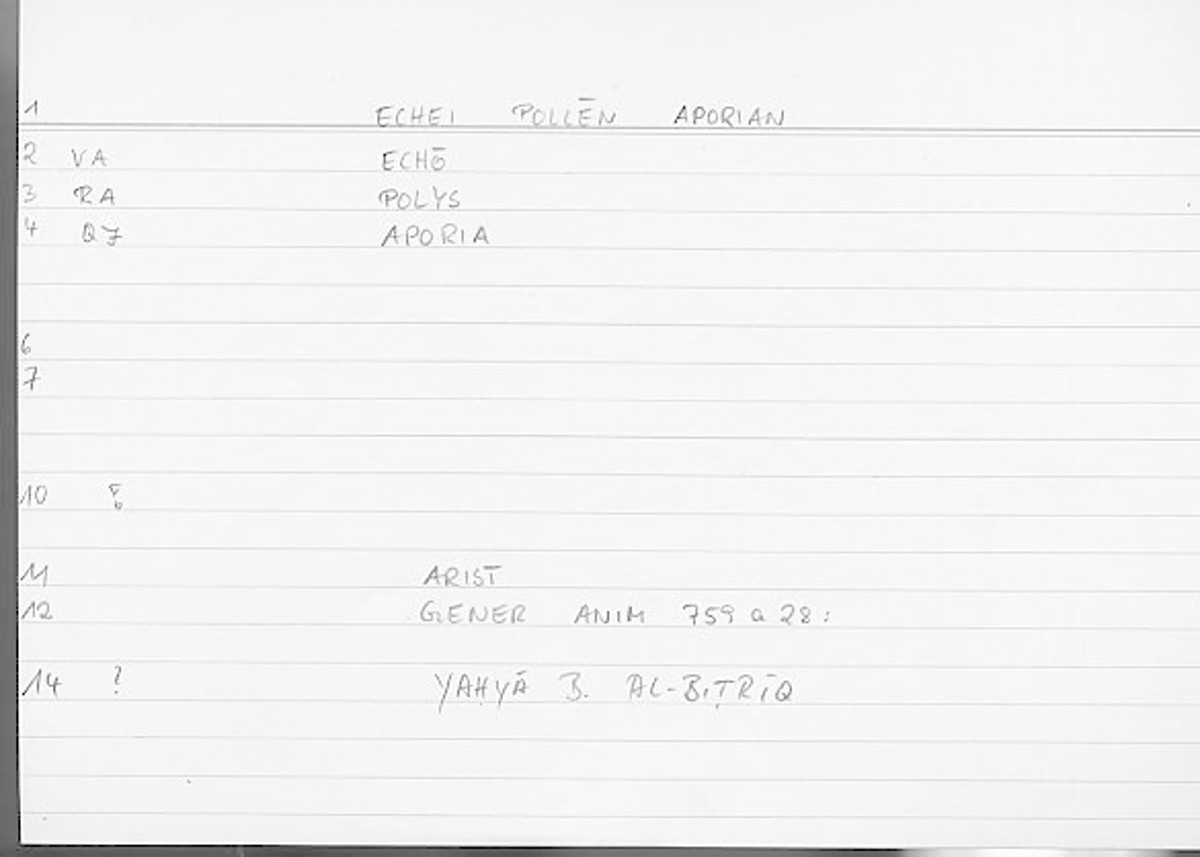 1 ECHEI POLLĒN APORIAN
2 VA ECHŌ
3 RA POLYS
4 QJ APORIA
6
7
10
11 ARIST
12 GENER ANIM 759 a 28:
14 ? YAḤYĀ B. AL-BIṬRĪQ